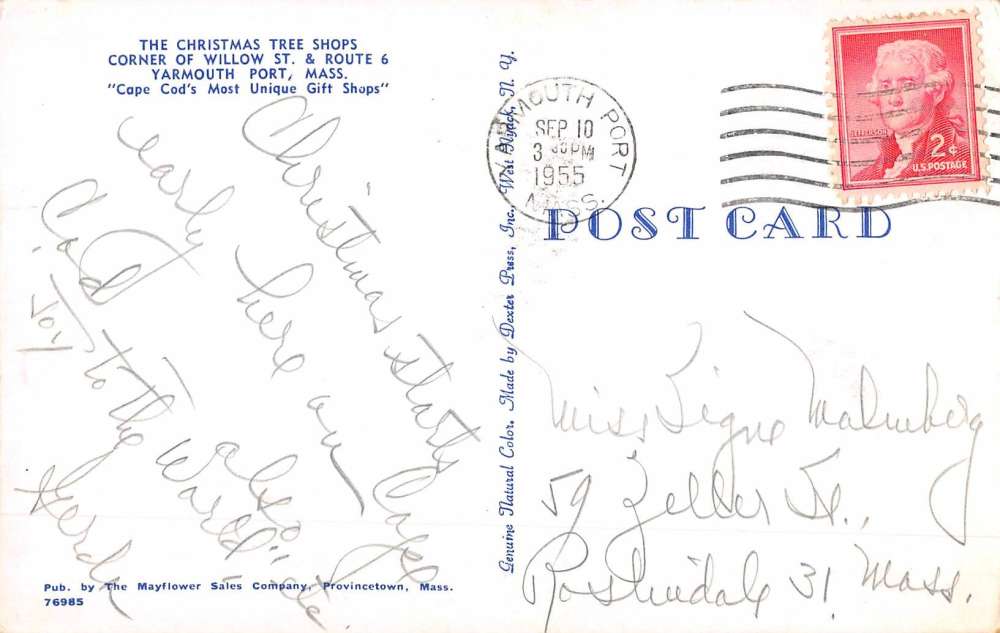 THE CHRISTMAS TREE SHOPS
CORNER OF WILLOW ST. & ROUTE 6
YARMOUTH PORT, MASS.
"Cape Cod's Most Unique Gift Shops"
Christmas starts
early here on Cape
Cod also
"Joy to the World" etc.
Gerda
Pub. by The Mayflower Sales Company, Provincetown, Mass.
76985
Genuine Natural Color. Made by Dexter Press, Inc., West Nyack, N. Y.
YARMOUTH PORT
SEP 10
3 30 PM
1955
MASS.
JEFFERSON
2¢
U.S. POSTAGE
POST CARD
Miss Signe Malmberg
59 Zeller St.,
Roslindale 31, Mass.